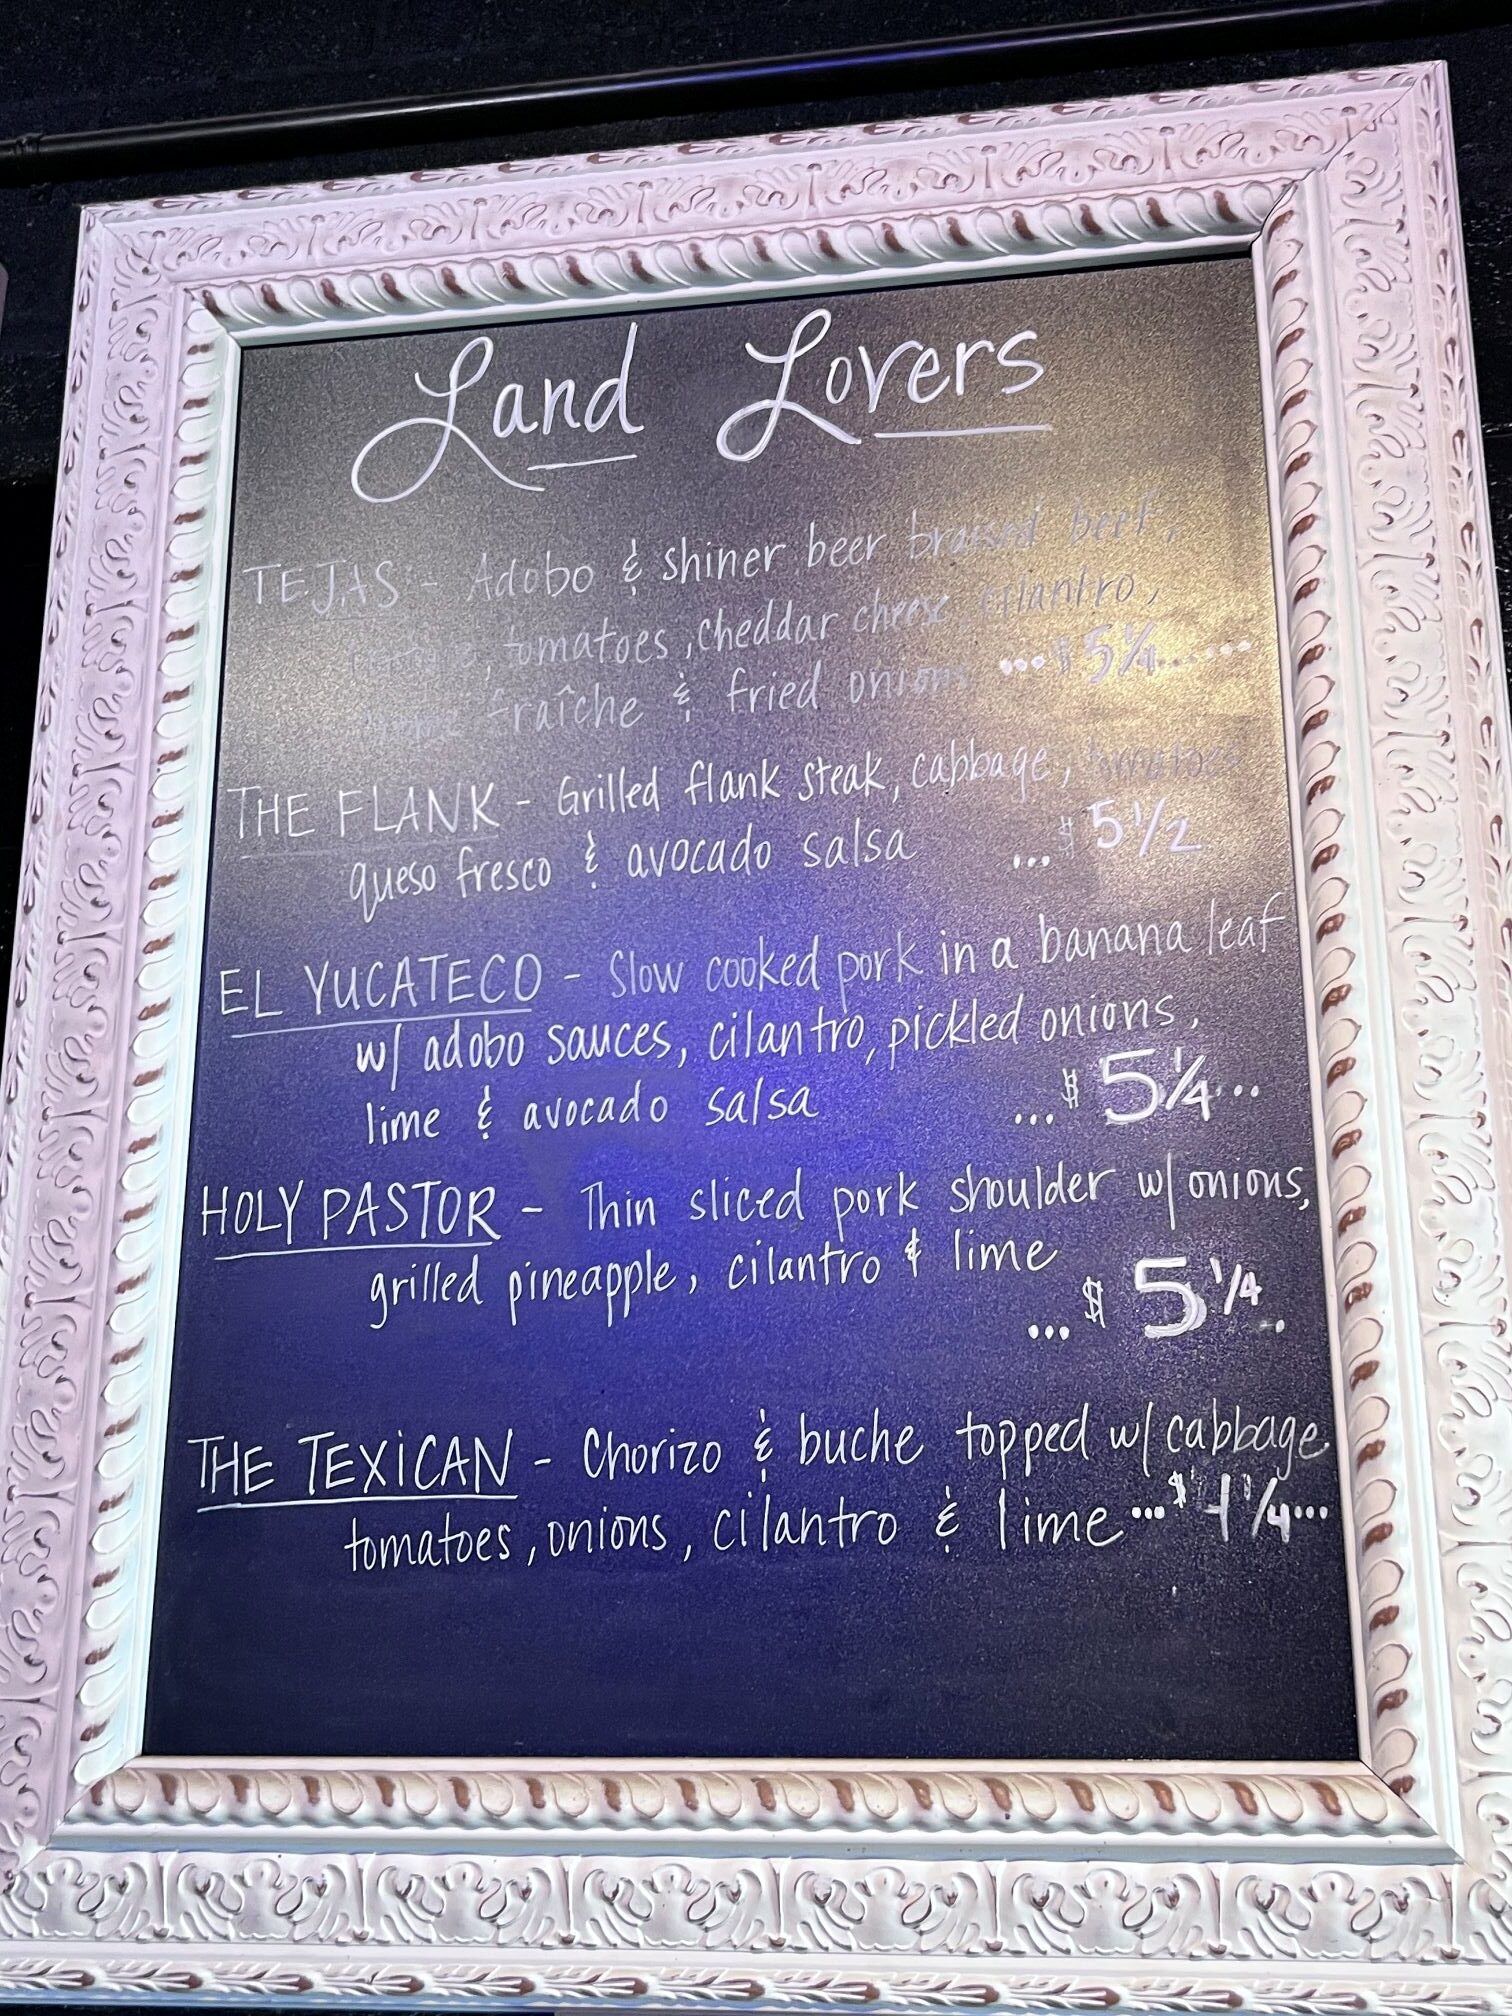 Land Lovers
TEJAS - Adobo & shiner beer braised beef,
tomatoes, cheddar cheese, cilantro,
fraîche & fried onions ...$ 5 1/4......
THE FLANK - Grilled flank steak, cabbage, tomatoes
queso fresco & avocado salsa ...$ 5 1/2
EL YUCATECO - Slow cooked pork in a banana leaf
w/ adobo sauces, cilantro, pickled onions,
lime & avocado salsa ...$ 5 1/4...
HOLY PASTOR - Thin sliced pork shoulder w/ onions,
grilled pineapple, cilantro & lime
...$ 5 1/4..
THE TEXiCAN - Chorizo & buche topped w/ cabbage
tomatoes, onions, cilantro & lime ...$ 4 1/4...